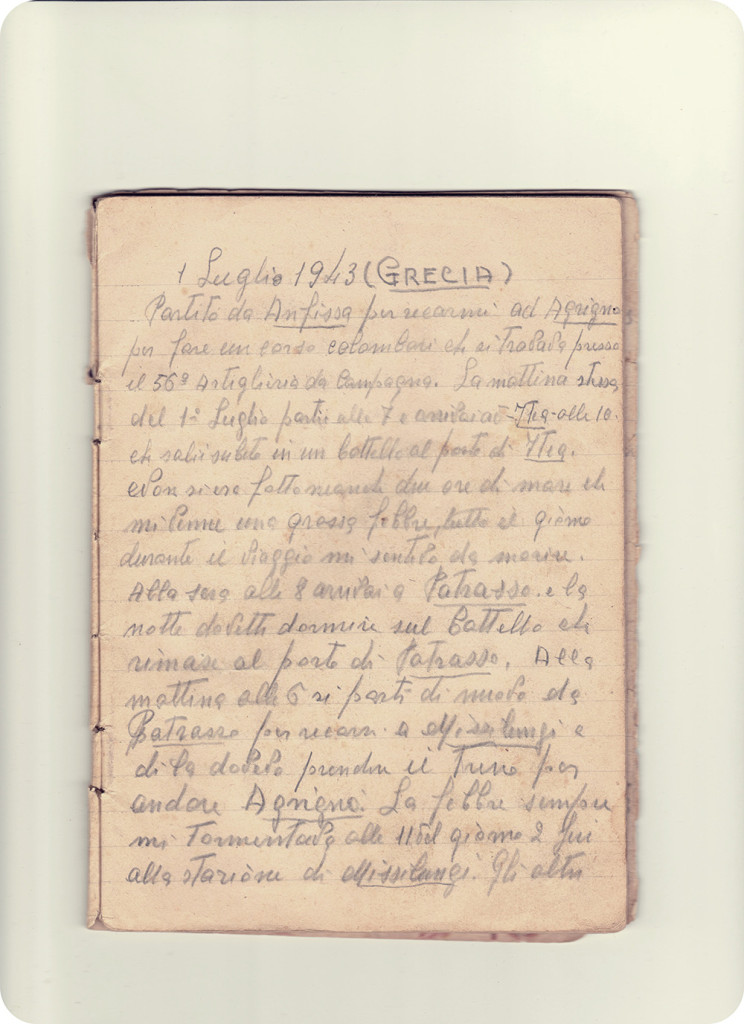 1 Luglio 1943 (GRECIA)
Partito da Anfissa per recarmi ad Agrigno
per fare un corso colombari che si trovava presso
il 56º Artiglieria da Campagna. La mattina stessa
del 1º Luglio partii alle 7 e arrivai ad Itea alle 10.
che salii subito in un battello al porto di Itea.
Non si era fatto neanche due ore di mare che
mi venne una grossa febbre, tutto il giorno
durante il viaggio mi sentivo da morire.
Alla sera alle 8 arrivai a Patrasso. e la
notte dovetti dormire sul battello che
rimase al porto di Patrasso. Alla
mattina alle 6 si partì di nuovo da
Patrasso per recarsi a Missilungi e
di la dovevo prendere il Treno per
andare Agrigno. La febbre sempre
mi Tormentava alle 11 del giorno 2 fui
alla stazione di Missilungi. Gli altri